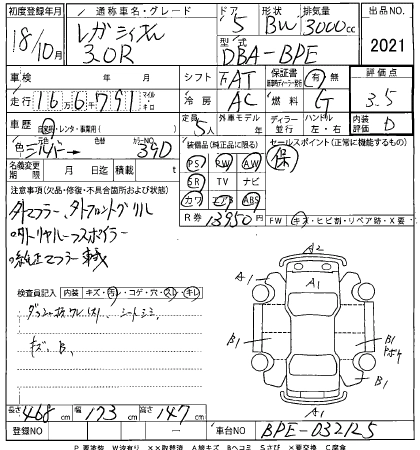 初度登録年月 通称車名・グレード ドア 形状 排気量 出品NO.
18/10月 レガシィ 3.0R 5 BW 3000cc 2021
型式 DBA-BPE
車検 年 月 シフト FAT 保証書 有・無 評価点
走行 166791 km 冷房 AC 燃料 G 3.5
車歴 自家用・レンタ・事業用 定員 5人 外車モデル 年 ディーラー 並行 ハンドル 左・右 内装 D
色 シルバー 色替 カラーNO 39D 装備品(純正品に限る) セールスポイント(正常に機能するもの)
名義変更期限 月 日 積載 t PS PW AW 保
注意事項(欠品・修復・不具合箇所および状態) SR TV ナビ
カワ エアB ABS
R券 13950円 FW キズ・ヒビ割・リペア跡・X要
社外マフラー、社外フロントグリル
・社外リヤルーフスポイラー
・純正マフラー 車載
検査員記入 内装 キズ・汚レ・コゲ・穴・スレ・キレ
シートシミ
キズ、B、
A2
A1 A1 A1
B1 B1
A1 B1
A1
長さ 468 cm 幅 173 cm 高さ 147 cm
登録NO 車台NO BPE-032125
P 要塗装 W波有り XX取替済 A線キズ Bヘコミ Sさび X要交換 C腐食